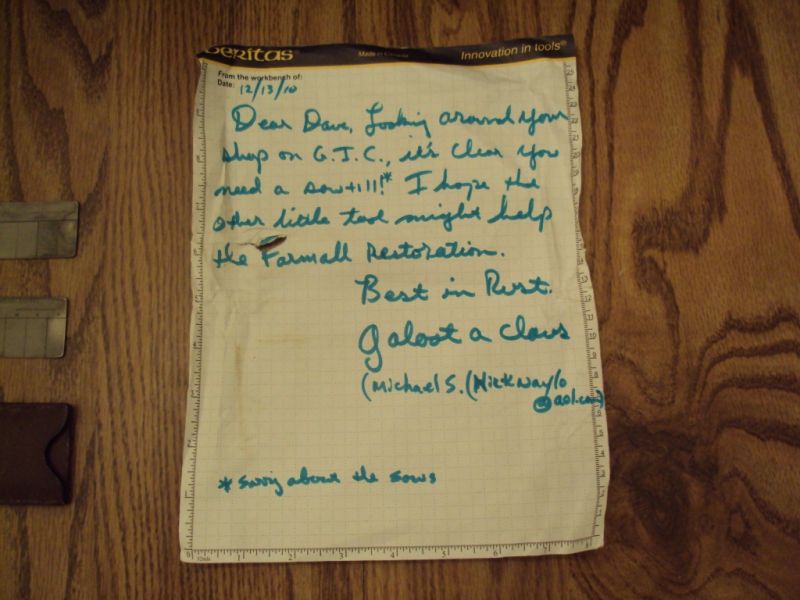 veritas Made in Canada Innovation in tools®
From the workbench of:
Date: 12/13/10
Dear Dave, Looking around your
shop on G.I.C., it's clear you
need a saw till!* I hope the
other little tool might help
the Farmall Restoration.
Best in Rust.
Galoot a Claus
(Michael S. (Nicknaylo
@aol.com)
* sorry about the saws
0 1 2 3 4 5 6 7